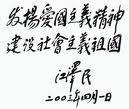 发扬爱国主义精神
建设社会主义祖国
江泽民
二〇〇三年四月一日